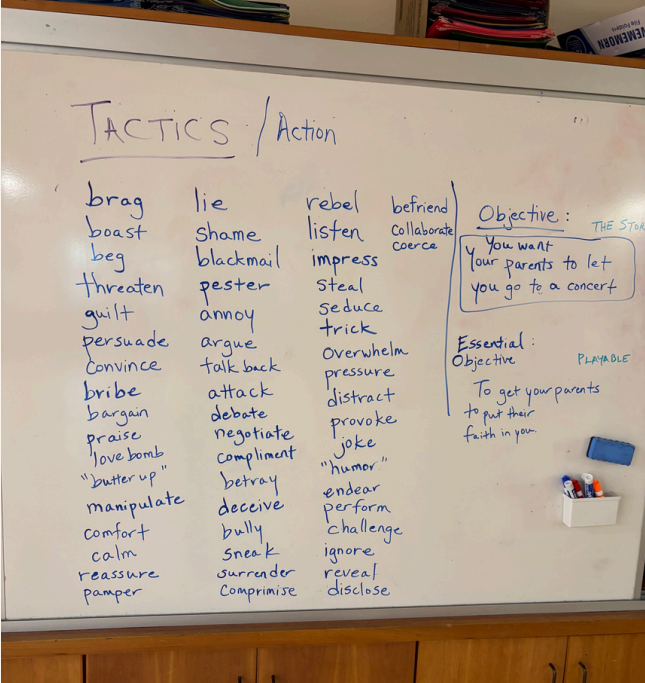 MEMORN
File Folders
TACTICS / Action
brag
boast
beg
threaten
guilt
persuade
convince
bribe
bargain
praise
love bomb
"butter up"
manipulate
comfort
calm
reassure
pamper
lie
shame
blackmail
pester
annoy
argue
talk back
attack
debate
negotiate
compliment
betray
deceive
bully
sneak
surrender
Comprimise
rebel
listen
impress
steal
seduce
trick
overwhelm
pressure
distract
provoke
joke
"humor"
endear
perform
challenge
ignore
reveal
disclose
befriend
collaborate
coerce
Objective :
THE STOR
You want
Your parents to let
you go to a concert
Essential :
Objective
PLAYABLE
To get your parents
to put their
faith in you.